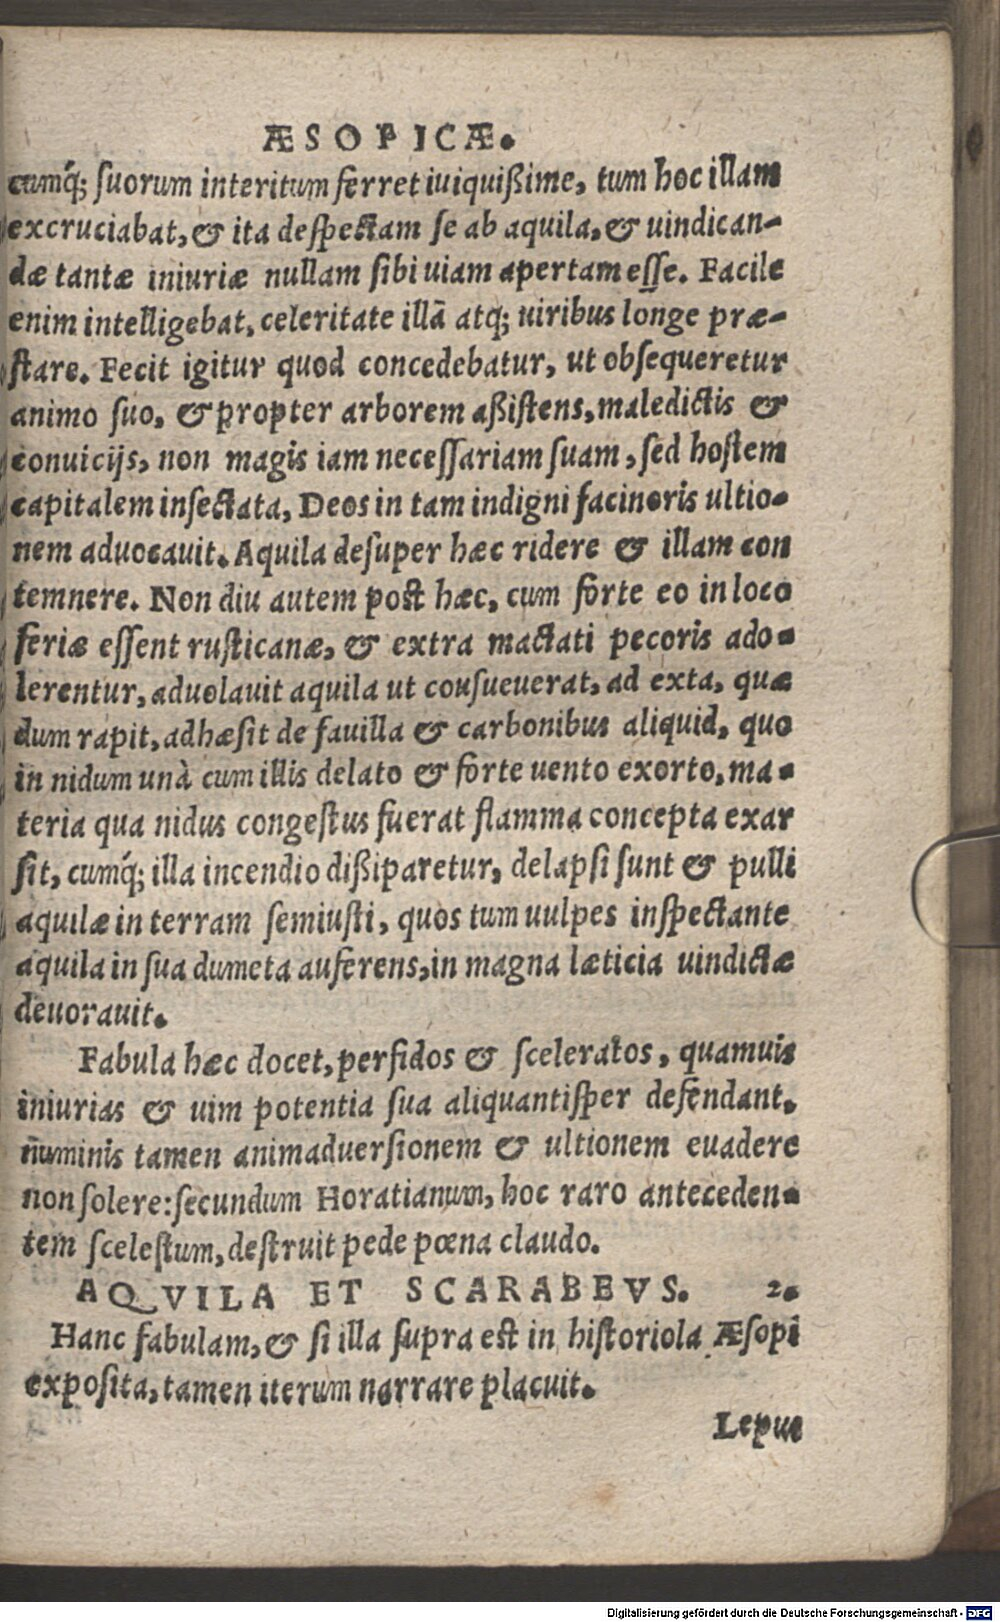 ÆSOPICÆ.
cumq́; ſuorum interitum ferret iuiquißime, tum hoc illam
excruciabat, & ita deſpectam ſe ab aquila, & uindican-
dæ tantæ iniuriæ nullam ſibi uiam apertam eſſe. Facile
enim intelligebat, celeritate illā atq; uiribus longe præ-
ſtare. Fecit igitur quod concedebatur, ut obſequeretur
animo ſuo, & propter arborem aßiſtens, maledictis &
conuicijs, non magis iam neceſſariam ſuam, ſed hoſtem
capitalem inſectata, Deos in tam indigni facinoris ultio-
nem aduocauit. Aquila deſuper hæc ridere & illam con
temnere. Non diu autem poſt hæc, cum forte eo in loco
feriæ eſſent ruſticanæ, & extra mactati pecoris ado-
lerentur, aduolauit aquila ut couſueuerat, ad exta, quæ
dum rapit, adhæſit de fauilla & carbonibus aliquid, quo
in nidum unà cum illis delato & forte uento exorto, ma-
teria qua nidus congeſtus fuerat flamma concepta exar
ſit, cumq́; illa incendio dißiparetur, delapſi ſunt & pulli
aquilæ in terram ſemiuſti, quos tum uulpes inſpectante
aquila in ſua dumeta auferens, in magna læticia uindictæ
deuorauit.
Fabula hæc docet, perfidos & ſceleratos, quamuis
iniurias & uim potentia ſua aliquantiſper defendant.
numinis tamen animaduerſionem & ultionem euadere
non ſolere: ſecundum Horatianum, hoc raro anteceden-
tem ſceleſtum, deſtruit pede pœna claudo.
AQVILA ET SCARABEVS. 2.
Hanc fabulam, & ſi illa ſupra eſt in hiſtoriola Æſopi
expoſita, tamen iterum narrare placuit.
Lepus
Digitalisierung gefördert durch die Deutsche Forschungsgemeinschaft - DFG